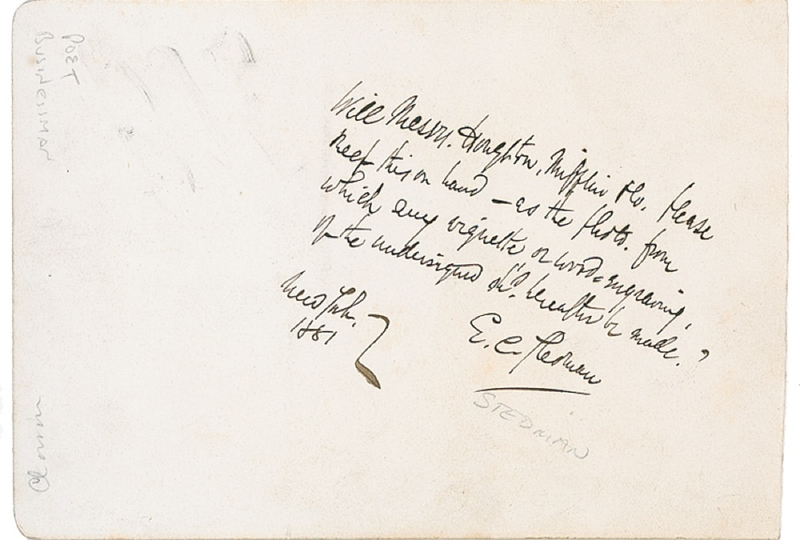 Will Messrs. Houghton, Mifflin & Co. Please
keep this on hand — as the photo. from
which any vignette or wood-engraving,
of the undersigned sh'd. hereafter be made?
E. C. Stedman
New York.
1881
STEDMAN
POET
BUSINESSMAN